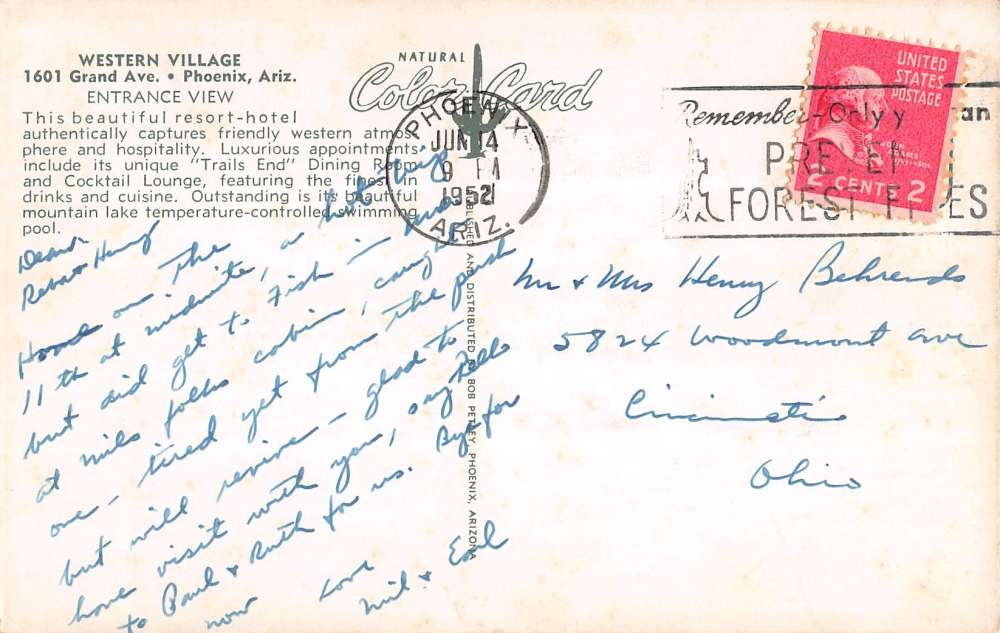 WESTERN VILLAGE
1601 Grand Ave. • Phoenix, Ariz.
ENTRANCE VIEW
This beautiful resort-hotel
authentically captures friendly western atmos-
phere and hospitality. Luxurious appointments
include its unique "Trails End" Dining Room
and Cocktail Lounge, featuring the finest in
drinks and cuisine. Outstanding is its beautiful
mountain lake temperature-controlled swimming
pool.
NATURAL
Color Card
PHOENIX
JUN 14
9 PM
1952
ARIZ.
Remember-Only
PRE EN
FOREST FIRES
UNITED
STATES
POSTAGE
JOHN
ADAMS
2 CENTS 2
PUBLISHED AND DISTRIBUTED BY BOB PETLEY, PHOENIX, ARIZONA
Dear
Reba & Henry
Home on the
11th at midnite, a hot trip
but did get to Fish in
at mils folks cabin, caught
one - tired yet from the push
but will revive - glad to
have visit with you, say hello
to Paul & Ruth for us. Bye for
now Love
Mil & Earl
Mr & Mrs Henry Behrends
5824 Woodmont ave
Cincinnati
Ohio